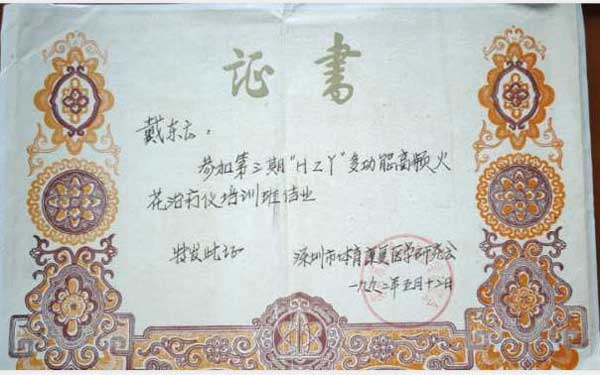 证书
戴东云：
参加第三期“HZY”多功能高频火
花治疗仪培训班结业
特发此证
深圳市体育康复医学研究会
一九九二年五月十二日